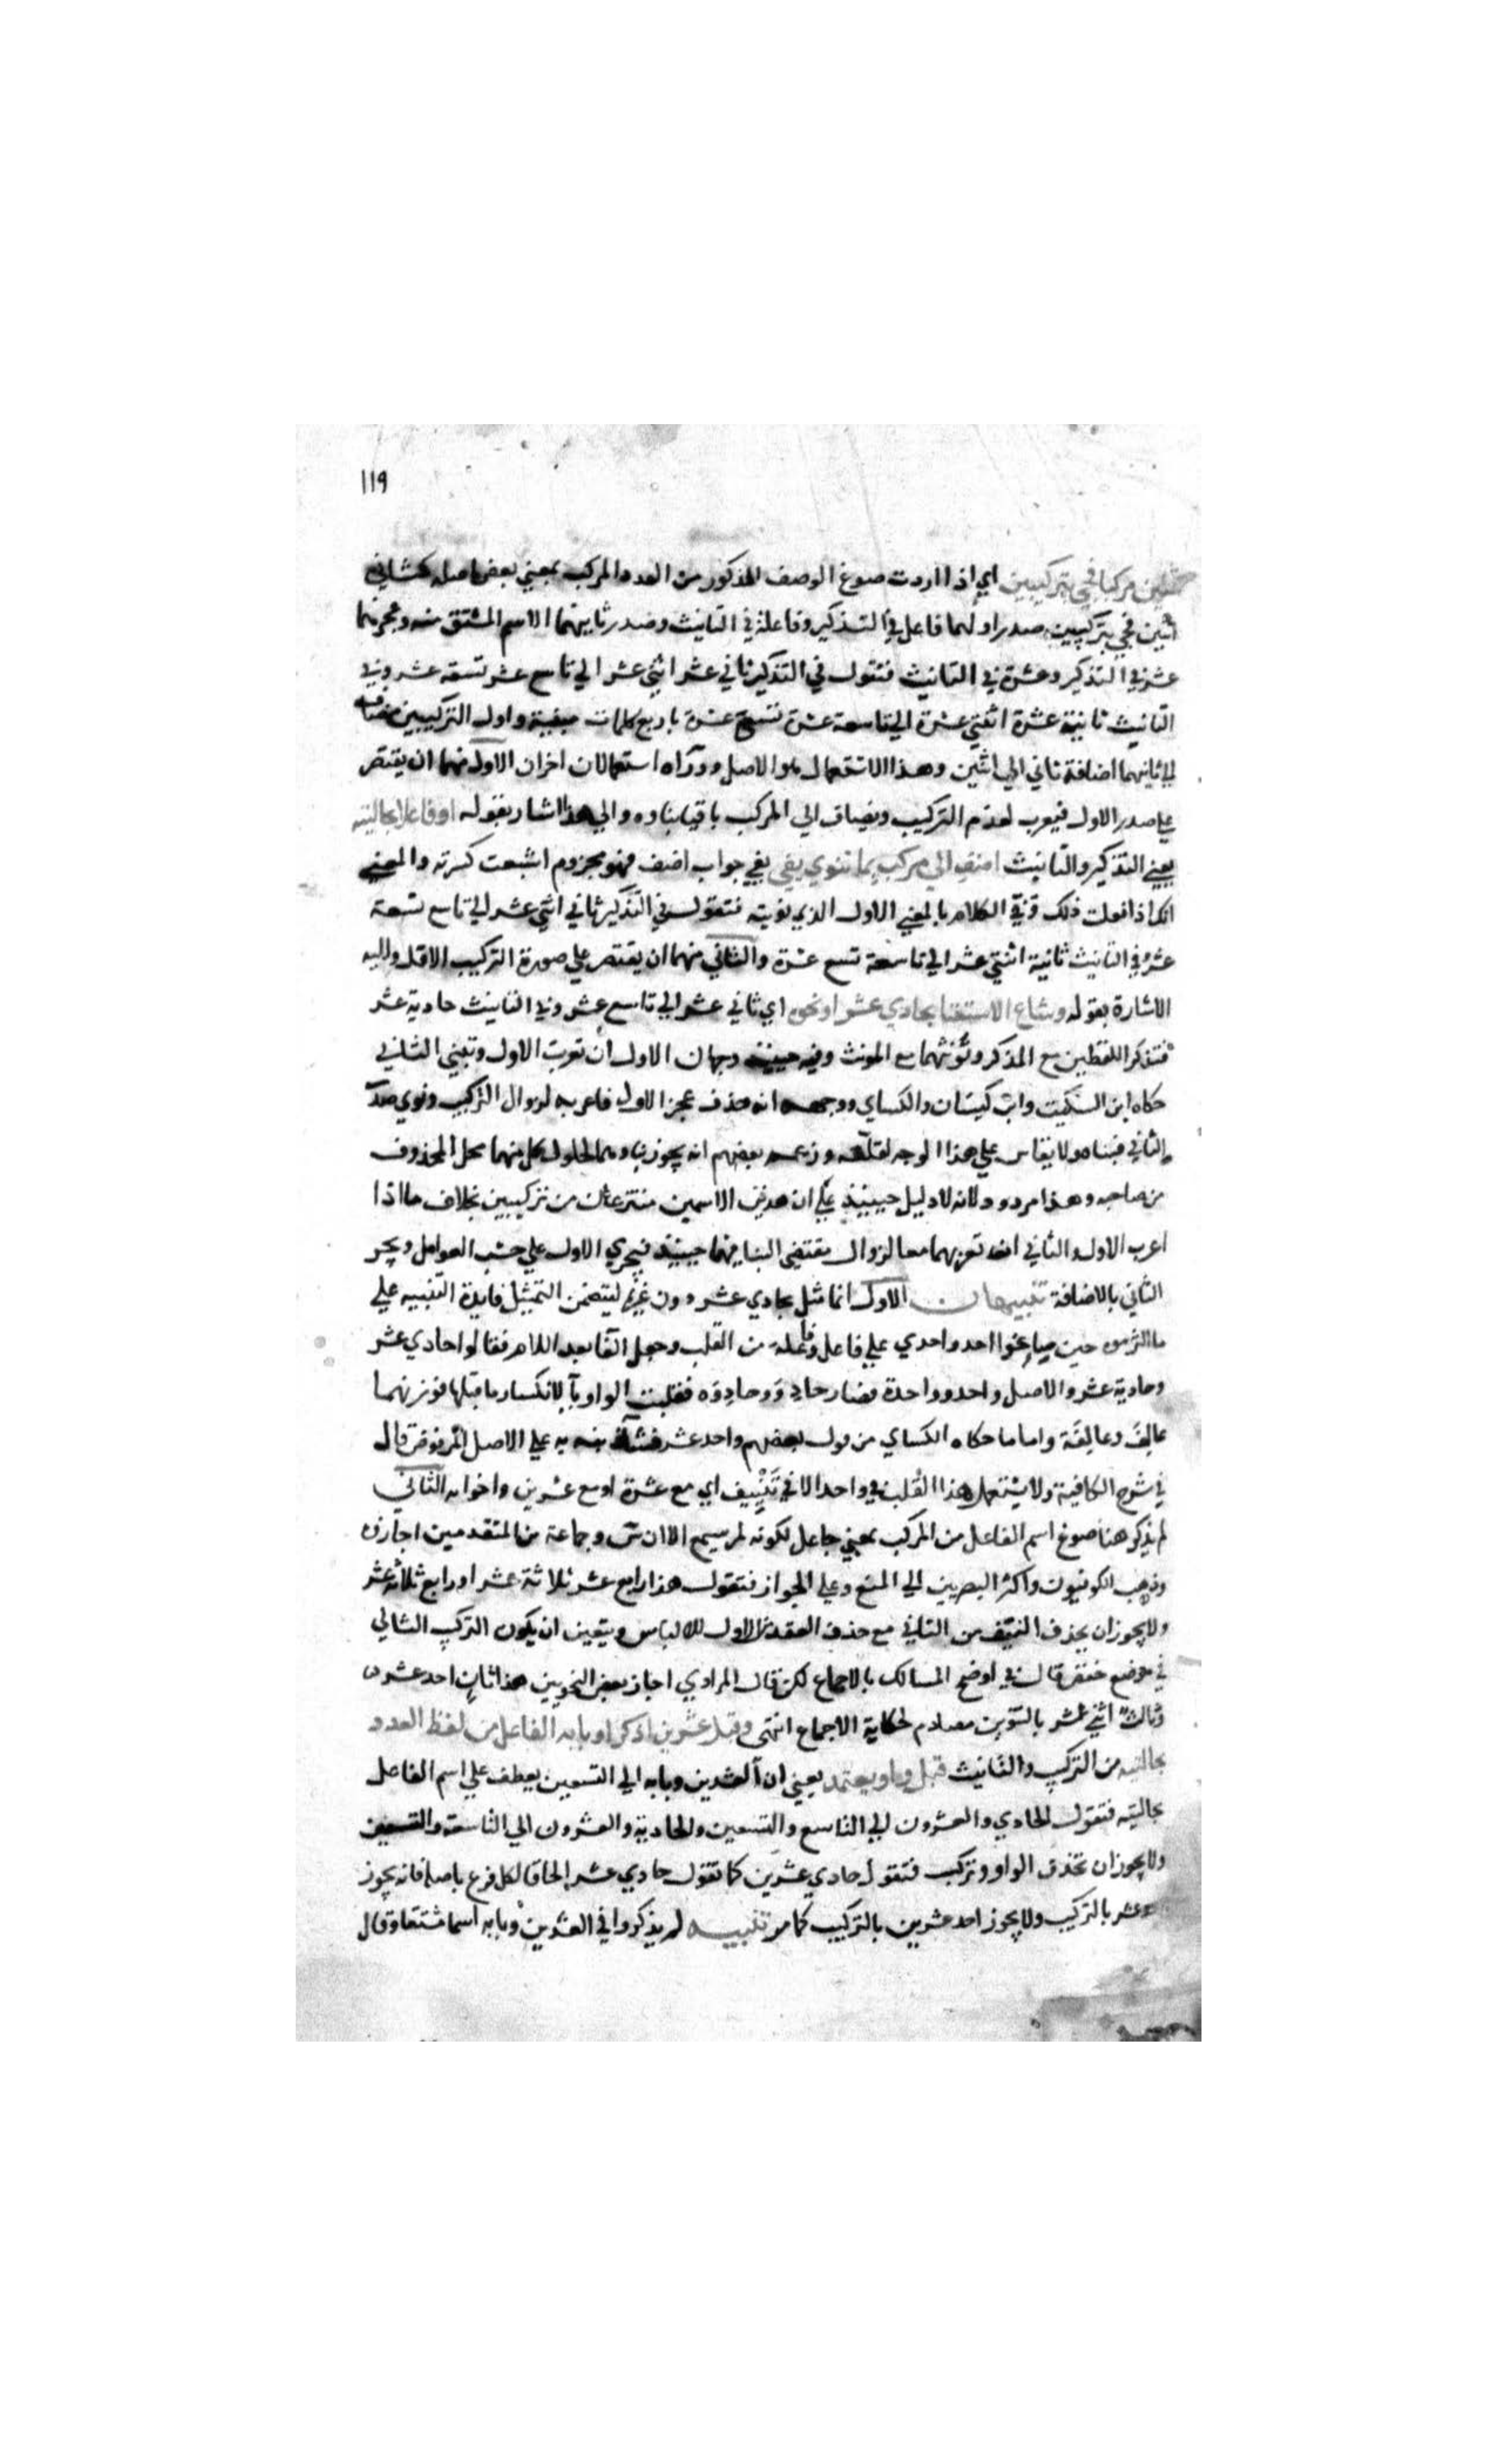 ١١٩
اثنين مركبا فجئ بتركيبين اي اذا اردت صوغ الوصف المذكور من العدد المركب بمعني بعض اصله كثاني
اثنين فجئ بتركيبين صدر اولهما فاعل في التذكير وفاعلة في التانيث وصدر ثانيهما الاسم المشتق منه وعجزهما
عشر في التذكير وعشرة في التانيث فتقول في التذكير ثاني عشر اثني عشر الي تاسع عشر تسعة عشر وفي
التانيث ثانية عشرة اثنتي عشرة الي تاسعة عشرة تسع عشرة باربع كلمات مبنية واول التركيبين مضاف
الي ثانيهما اضافة ثاني الي اثنين وهذا الاستعمال هو الاصل ووراه استعمالان اخران الاول منهما ان يقتصر
علي صدر الاول فيعرب لعدم التركيب ويضاف الي المركب باقيا بناوه والي هذا اشار بقوله اوفاعلا بحالتيه
يعني التذكير والتانيث اضف الي مركب بما تنوي يفي يفي جواب اضف فهو مجزوم اشبعت كسرته والمعني
انك اذا فعلت ذلك وفي الكلام بالمعني الاول الذي نويته فتقول في التذكير ثاني اثني عشر الي تاسع تسعة
عشر وفي التانيث ثانية اثنتي عشر الي تاسعة تسع عشرة والثاني منهما ان يقتصر علي صورة التركيب الاول واليه
الاشارة بقوله وشاع الاستغنا بحادي عشر اونحوه اي ثاني عشر الي تاسع عشر وفي التانيث حادية عشر
فتذكر اللفظين مع المذكر وتؤنثهما مع المونث وفيه حينيذ وجهان الاول ان تعرب الاول وتبني الثاني
حكاه ابن السكيت وابن كيسان والكساي ووجهه انه حذف عجز الاول فاعربه لزوال التركيب ونوي صدر
الثاني فبناه ولا يقاس علي هذا الوجه لقلته وزعم بعضهم انه يجوز بناوهما لحلول كل منهما محل المحذوف
من صاحبه وهذا مردود لانه لا دليل حينيذ علي ان هذين الاسمين منتزعان من تركيبين بخلاف ما اذا
اعرب الاول والثاني ان تعربهما معا لزوال مقتضي البنا فيهما حينيذ فيجري الاول علي حسب العوامل ويجر
الثاني بالاضافة تنبيهان الاول انما مثل بحادي عشر دون غيره ليتضمن التمثيل فايدة التنبيه علي
ما التزموه حين صاغوا احد واحدي علي فاعل وفاعلة من القلب وجعل الفا بعد اللام فقالوا حادي عشر
وحادية عشر والاصل واحد وواحدة فصار حادِوٌ وحادِوَه فقلبت الواو يآ لانكسار ما قبلها فوزنهما
عالِفٌ وعالِفَة واما ما حكاه الكساي من قول بعضهم واحد عشر فشاذ نبه به علي الاصل المرفوض قال
في شرح الكافية ولا يستعمل هذا القلب في واحد الا في تَنْيِيف اي مع عشرة او مع عشرين واخواته الثاني
لم يذكر هنا صوغ اسم الفاعل من المركب بمعني جاعل لكونه لم يسمع الا ان س وجماعة من المتقدمين اجازوه
وذهب الكوفيون واكثر البصريين الي المنع وعلي الجواز فتقول هذا رابع عشر ثلاثة عشر اورابع ثلاثة عشر
ولا يجوز ان يحذف النيف من الثاني مع حذف العقد من الاول للالباس ويتعين ان يكون التركيب الثاني
في موضع خفض قال في اوضح المسالك بالاجماع لكن قال المرادي اجاز بعض النحويين هذا ثانٍ احد عشر
وثالثٌ اثني عشر بالتنوين مصادم لحكاية الاجماع انتهي وقبل عشرين اذكرا وبابه الفاعل من لفظ العدد
بحالتيه من التركيب والتانيث قبل واو يعتمد يعني ان العشرين وبابه الي التسعين يعطف علي اسم الفاعل
بحالتيه فتقول الحادي والعشرون الي التاسع والتسعين والحادية والعشرون الي التاسعة والتسعين
ولا يجوز ان تحذف الواو وتركب فتقول حادي عشرين كما تقول حادي عشر الحاقا لكل فرع باصله فانه يجوز
عشر بالتركيب ولا يجوز احد عشرين بالتركيب كما مر تنبيه لم يذكروا في العشرين وبابه اسما مشتقا وقال